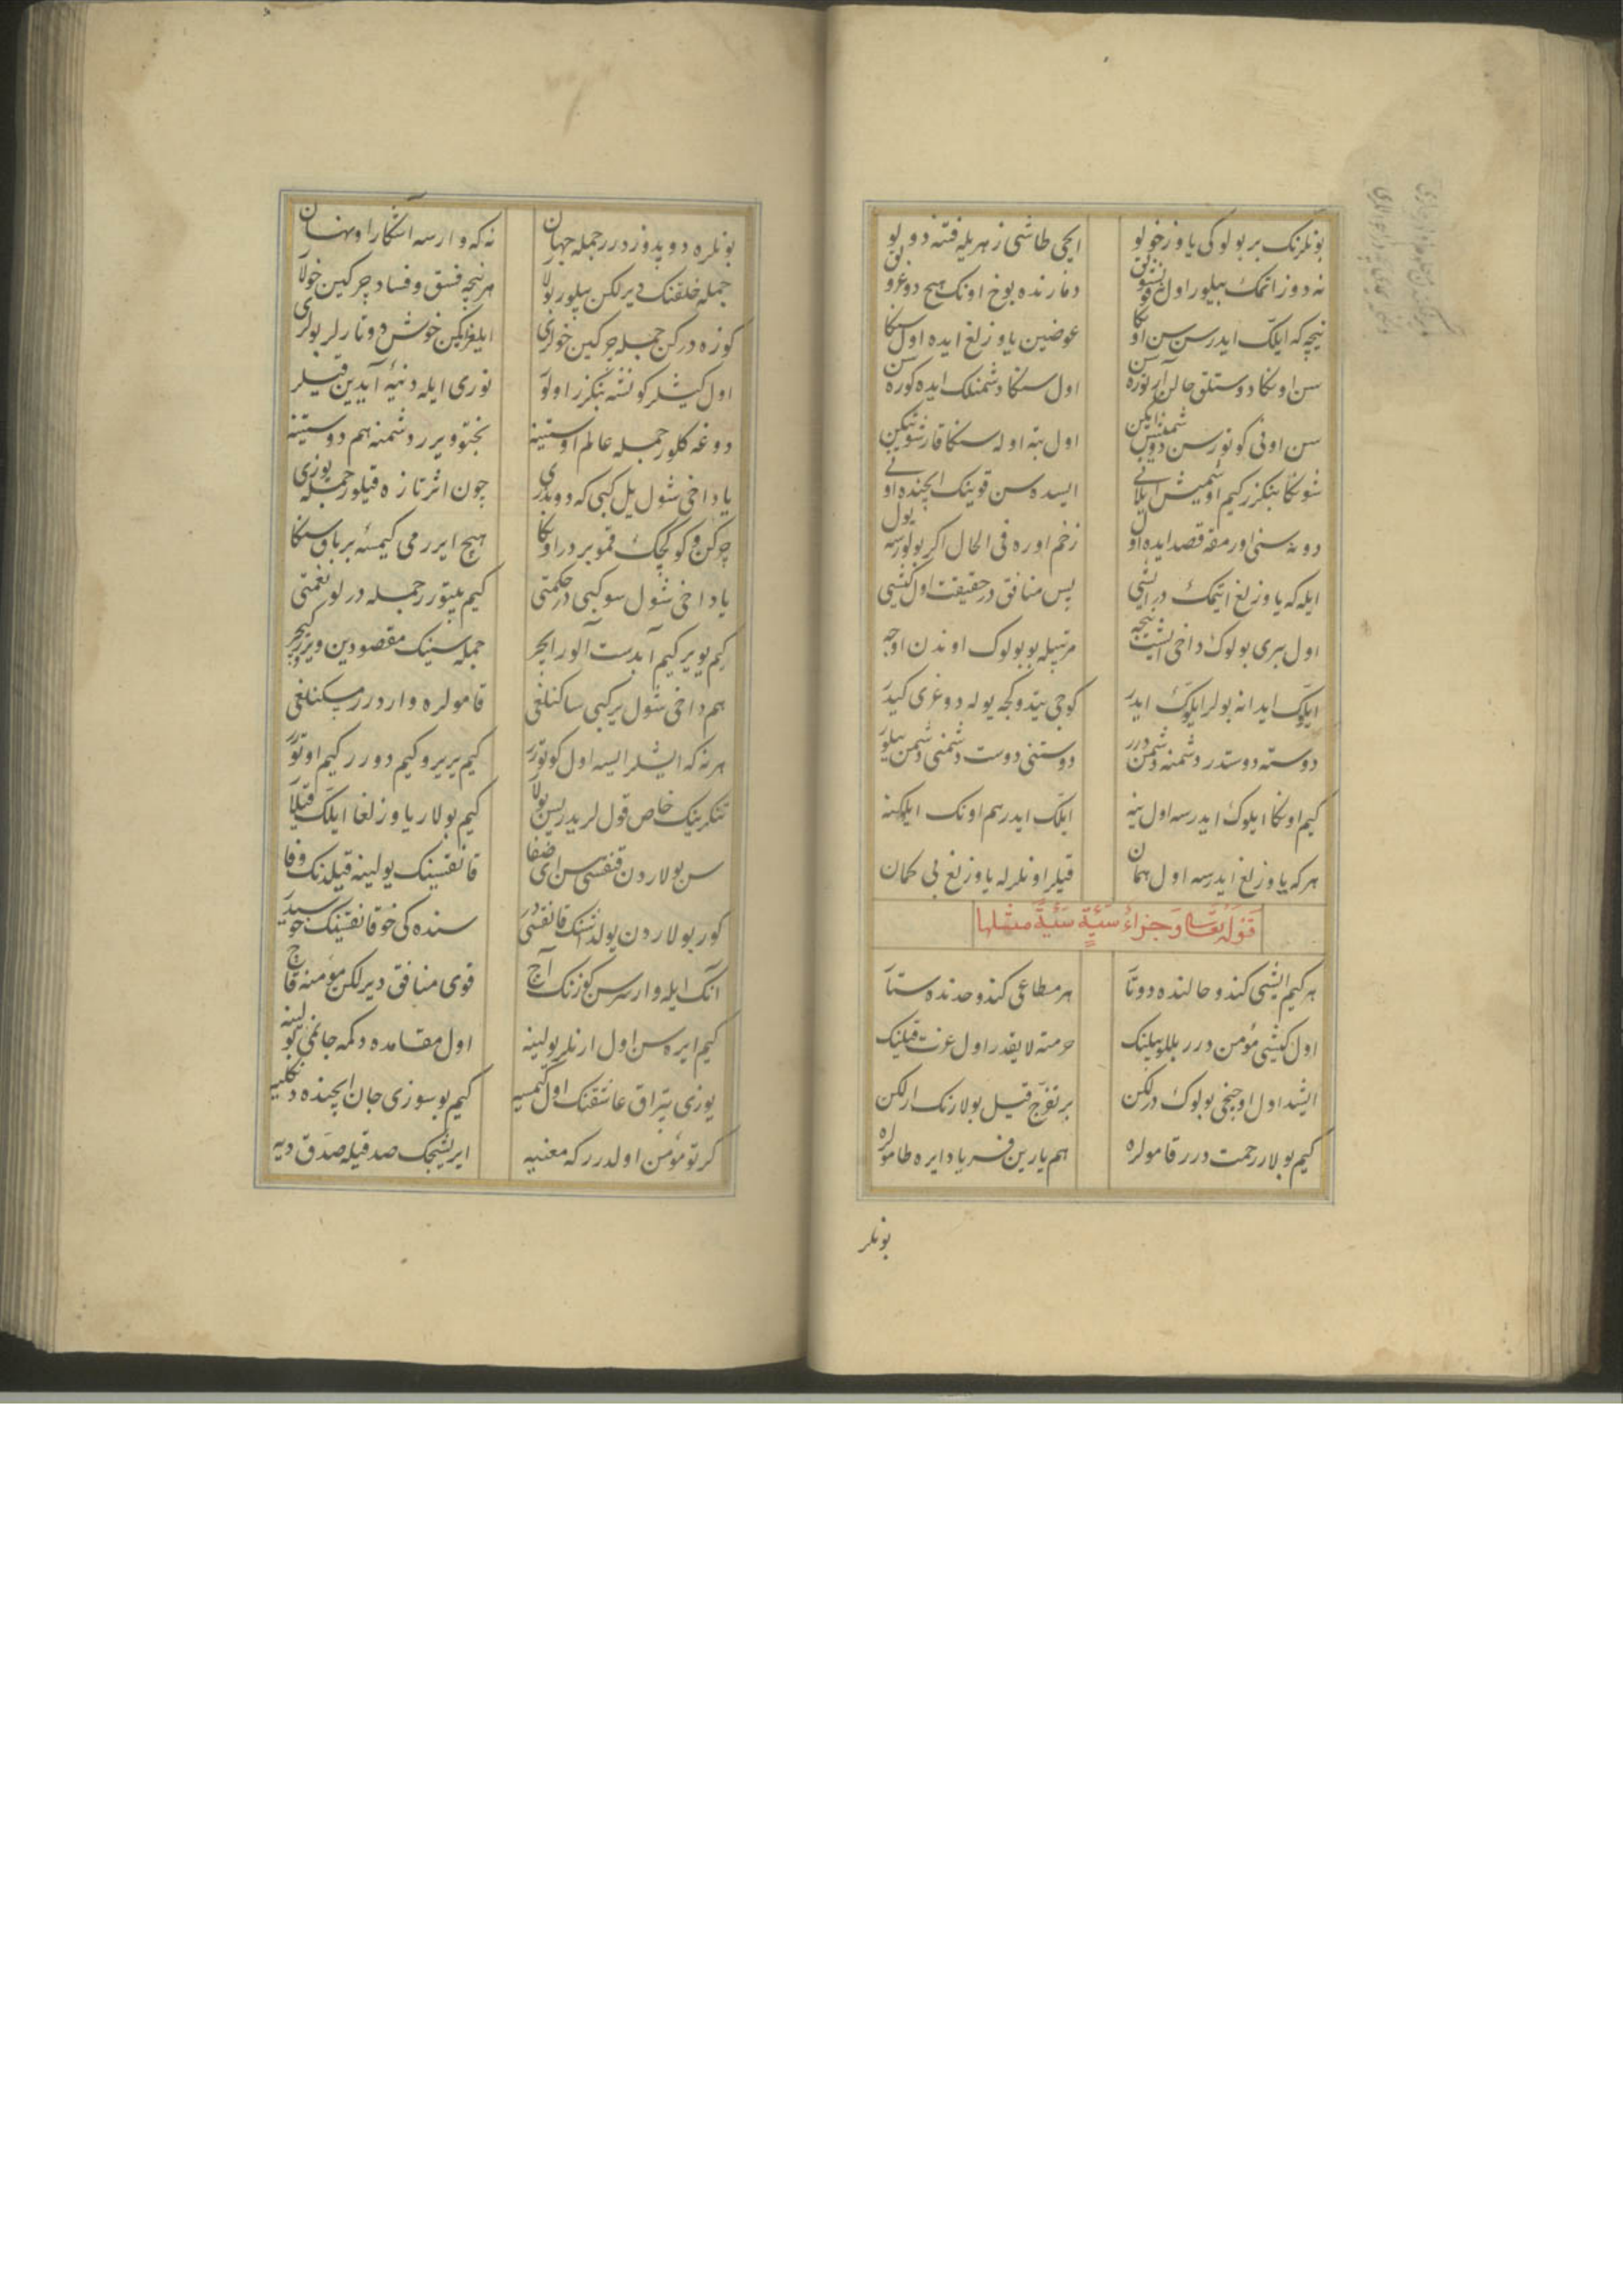 بونلرنک بر بولوکی یاوز خولو ایچی طاشی زهریله فتنه دولو
نه دوز اتمک بیلور اول نه قونشقلق دمارنده یوخ اونک هیچ دوغرولق
نیچه که ایلک ایدرسن سن اونکا عوضین یاوزلغ ایده اول سنکا
سن اونکا دوستلق حالن آرتورهسن اول سنکا دشمنلک ایده کورهسن
سن اونی کوتورسن دوشمنس ایکن اول بته اوله سنکا قارشو تیکن
شونکا بنکزر کیم اوشمیش ایلانی ایسده سن قوینک ایچنده اونی
دونه سنی اورمغه قصد ایده اول زخم اوره فی الحال اکر بولورسه یول
ایله که یاوزلغ ایتمک در ایشی پس منافق در حقیقت اول کیشی
اول بری بولوک داخی ایشیت نیجه مرتبیله بو بولوک اوندن اوجه
ایلوک ایدانه بولر ایلوک ایدر کوجی یتدوکجه یوله دوغری کیدر
دوسته دوستدر دشمنه دشمن درر دوستنی دوست دشمنی دشمن بیلور
کیم اونکا ایلوک ایدرسه اول ینه ایلک ایدر هم اونک ایلکنه
هرکه یاوزلغ ایدرسه اول همان قیلر اونلرله یاوزلغ بی کمان
قوله تعالی وجزاء سیئة سیئة مثلها
هر کیم ایشی کندو حالنده دوتا هر مطاعی کندو حدنده ستا
اول کیشی مؤمن درر بللو بیلنک حرمته لایقدر اول عزت قیلنک
ایشید اول اوجنجی بولوک درلکن بر تفرج قیل بولارنک ارلکن
کیم بولار رحمت درر قامولره هم یارین فریاد ایره طامولره
بونلر
بونلره دوپدوز درر جمله جهان نه که وارسه آشکارا و نهان
جمله خلقنک دیرلکن بیلور بولار هر نیجه فسق و فساد چرکین خولار
کوزه درکن جمله چرکین خولری ایلغرایکن خوش دوتارلر بولری
اول کیشلر کونشه بنکزر اولو نوری ایله دنیه آیدین قیلر
دوغه کلور جمله عالم اوستینه بختو ویرر دشمنه هم دوستینه
یا داخی شول یل کبی که دوندری چون اثر تازه قیلور جمله یوزی
چرکن و کوکچک قمو بردر اونکا هیچ ایررمی کیمسه بر باق سنکا
یا داخی شول سو کبی در حکمتی کیم بیتورر جمله درلو نعمتی
کیم یویر کیم آبدست آلور ایچر جمله سینک مقصودین ویرر کیچر
هم داخی شول یر کبی ساکنلغی قامولره واردرر مسکنلغی
هر نه که ایشلر ایسه اول کوتورر کیم یریر و کیم دورر کیم اوتورر
تنکرینک خاص قول لریدر پس بولار کیم بولار یاوزلغا ایلک قیلار
سن بولاردن قنقسی سن ای صفا قانقسینک یولینه قیلدنک وفا
کور بولاردن یولداشنک قانقسی در سنده کی خو قانقسینک خوسیدر
آنک ایله وارسن کوزنک آچ قوی منافق دیرلکن مؤمنه قاچ
کیم ایره سن اول ارنلر یولینه اول مقامده دکمه جانمی بولینه
یوزی یتراق عاشقنک اول کیمسیه کیم بو سوزی جان ایچنده دنکلیه
کرتو مؤمن اولدرر که معنیه ایریشیجک صدقیله صدق دیه